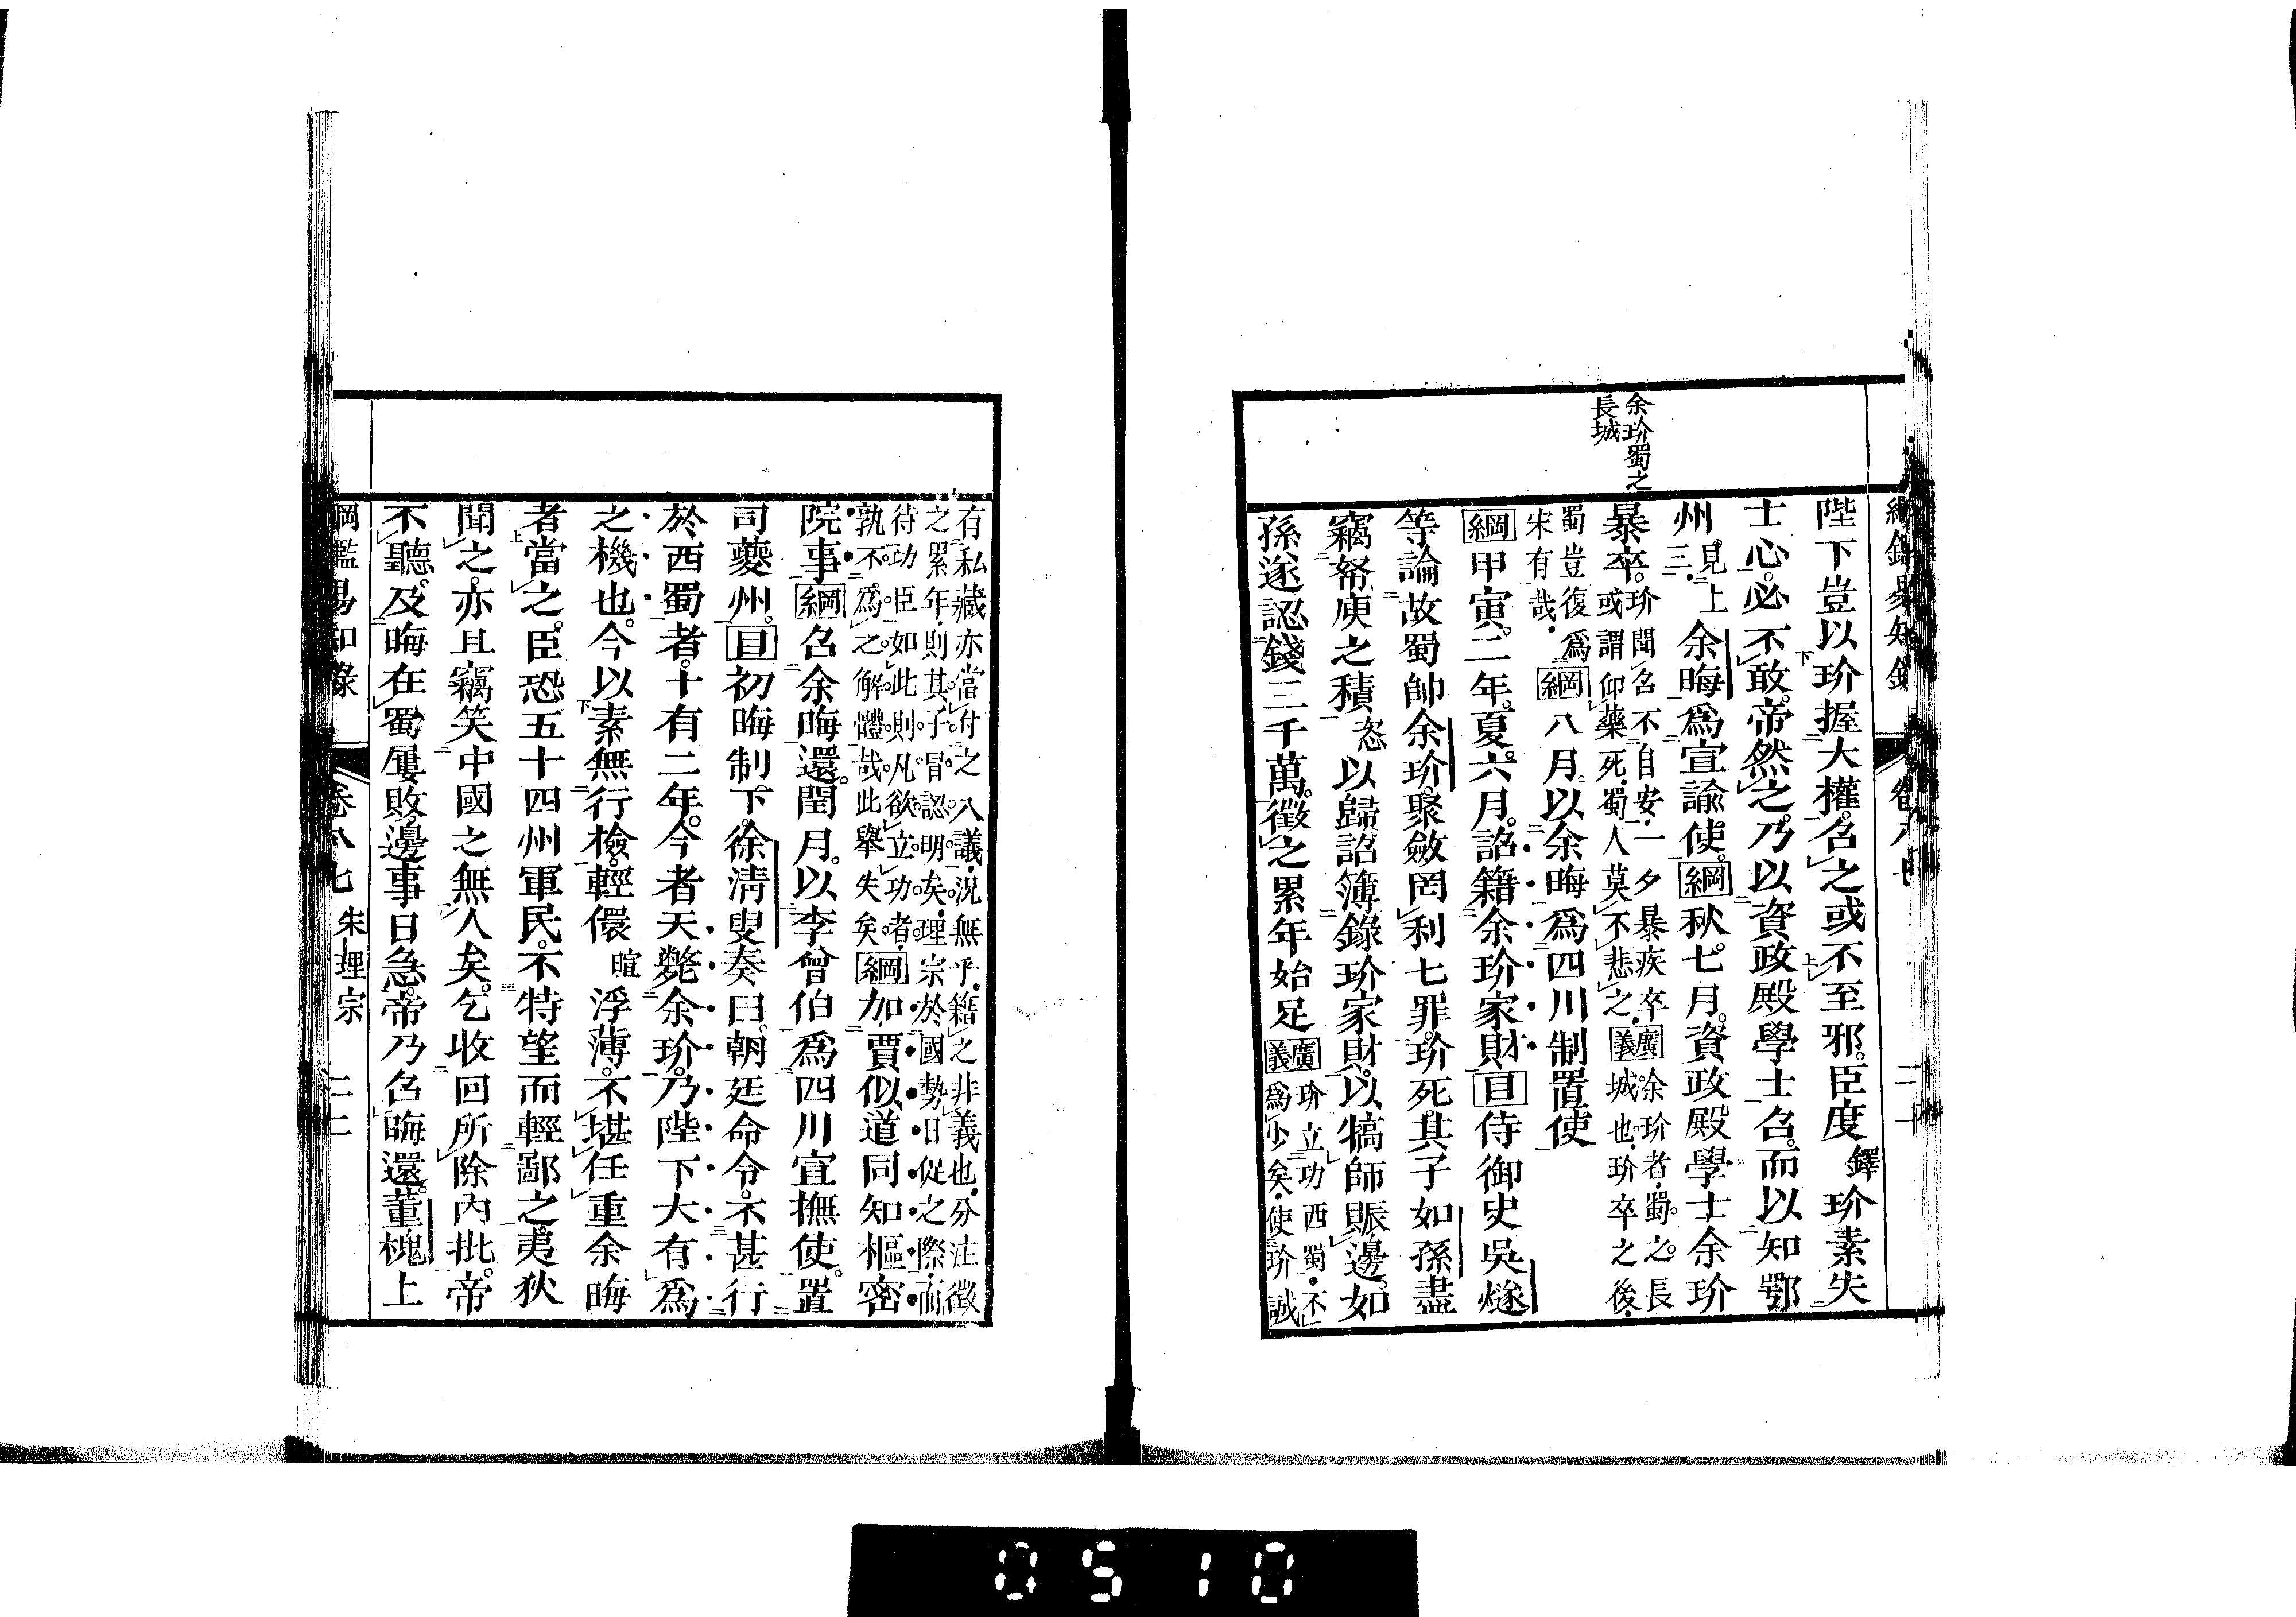 余玠蜀之
長城
陛下豈以玠握大權。召之或不至邪。臣度鐸玠素失
士心。必不敢。帝然之。乃以資政殿學士召。而以知鄂
州。見上三。余晦爲宣諭使。綱秋七月。資政殿學士余玠
暴卒。玠聞召不自安。一夕暴疾卒
或謂仰藥死。蜀人莫不悲之。
廣義余玠者。蜀之長
城也。玠卒之後。
蜀豈復爲
宋有哉。
綱八月。以余晦爲四川制置使
綱甲寅。二年。夏。六月。詔籍余玠家財。目侍御史吳燧
等論故蜀帥余玠。聚斂罔利七罪。玠死。其子如孫盡
竊帑庾之積恣以歸。詔簿錄玠家財。以犒師賑邊。如
孫遂認錢三千萬。徵之累年始足廣義
玠立功西蜀。不
爲少矣。使玠誠
有私藏亦當付之八議。況無乎。籍之非義也。分注徵
之累年。則其子冒認明矣。理宗於國勢日促之際。而
待功臣如此。則凡欲立功者。
孰不爲之解體哉。此舉失矣。
綱加賈似道同知樞密
院事。綱召余晦還。閏月。以李曾伯爲四川宣撫使。置
司夔州。目初晦制下。徐淸叟奏曰。朝廷命令。不甚行
於西蜀者。十有二年。今者天斃余玠。乃陛下大有爲
之機也。今以素無行檢。輕儇暄浮薄。不堪任重余晦
者當之。臣恐五十四州軍民。不特望而輕鄙之。夷狄
聞之。亦且竊笑中國之無人矣。乞收回所除內批。帝
不聽。及晦在蜀屢敗。邊事日急。帝乃召晦還。董槐上
綱鑑易知錄
卷八七
宋理宗
二二
0510